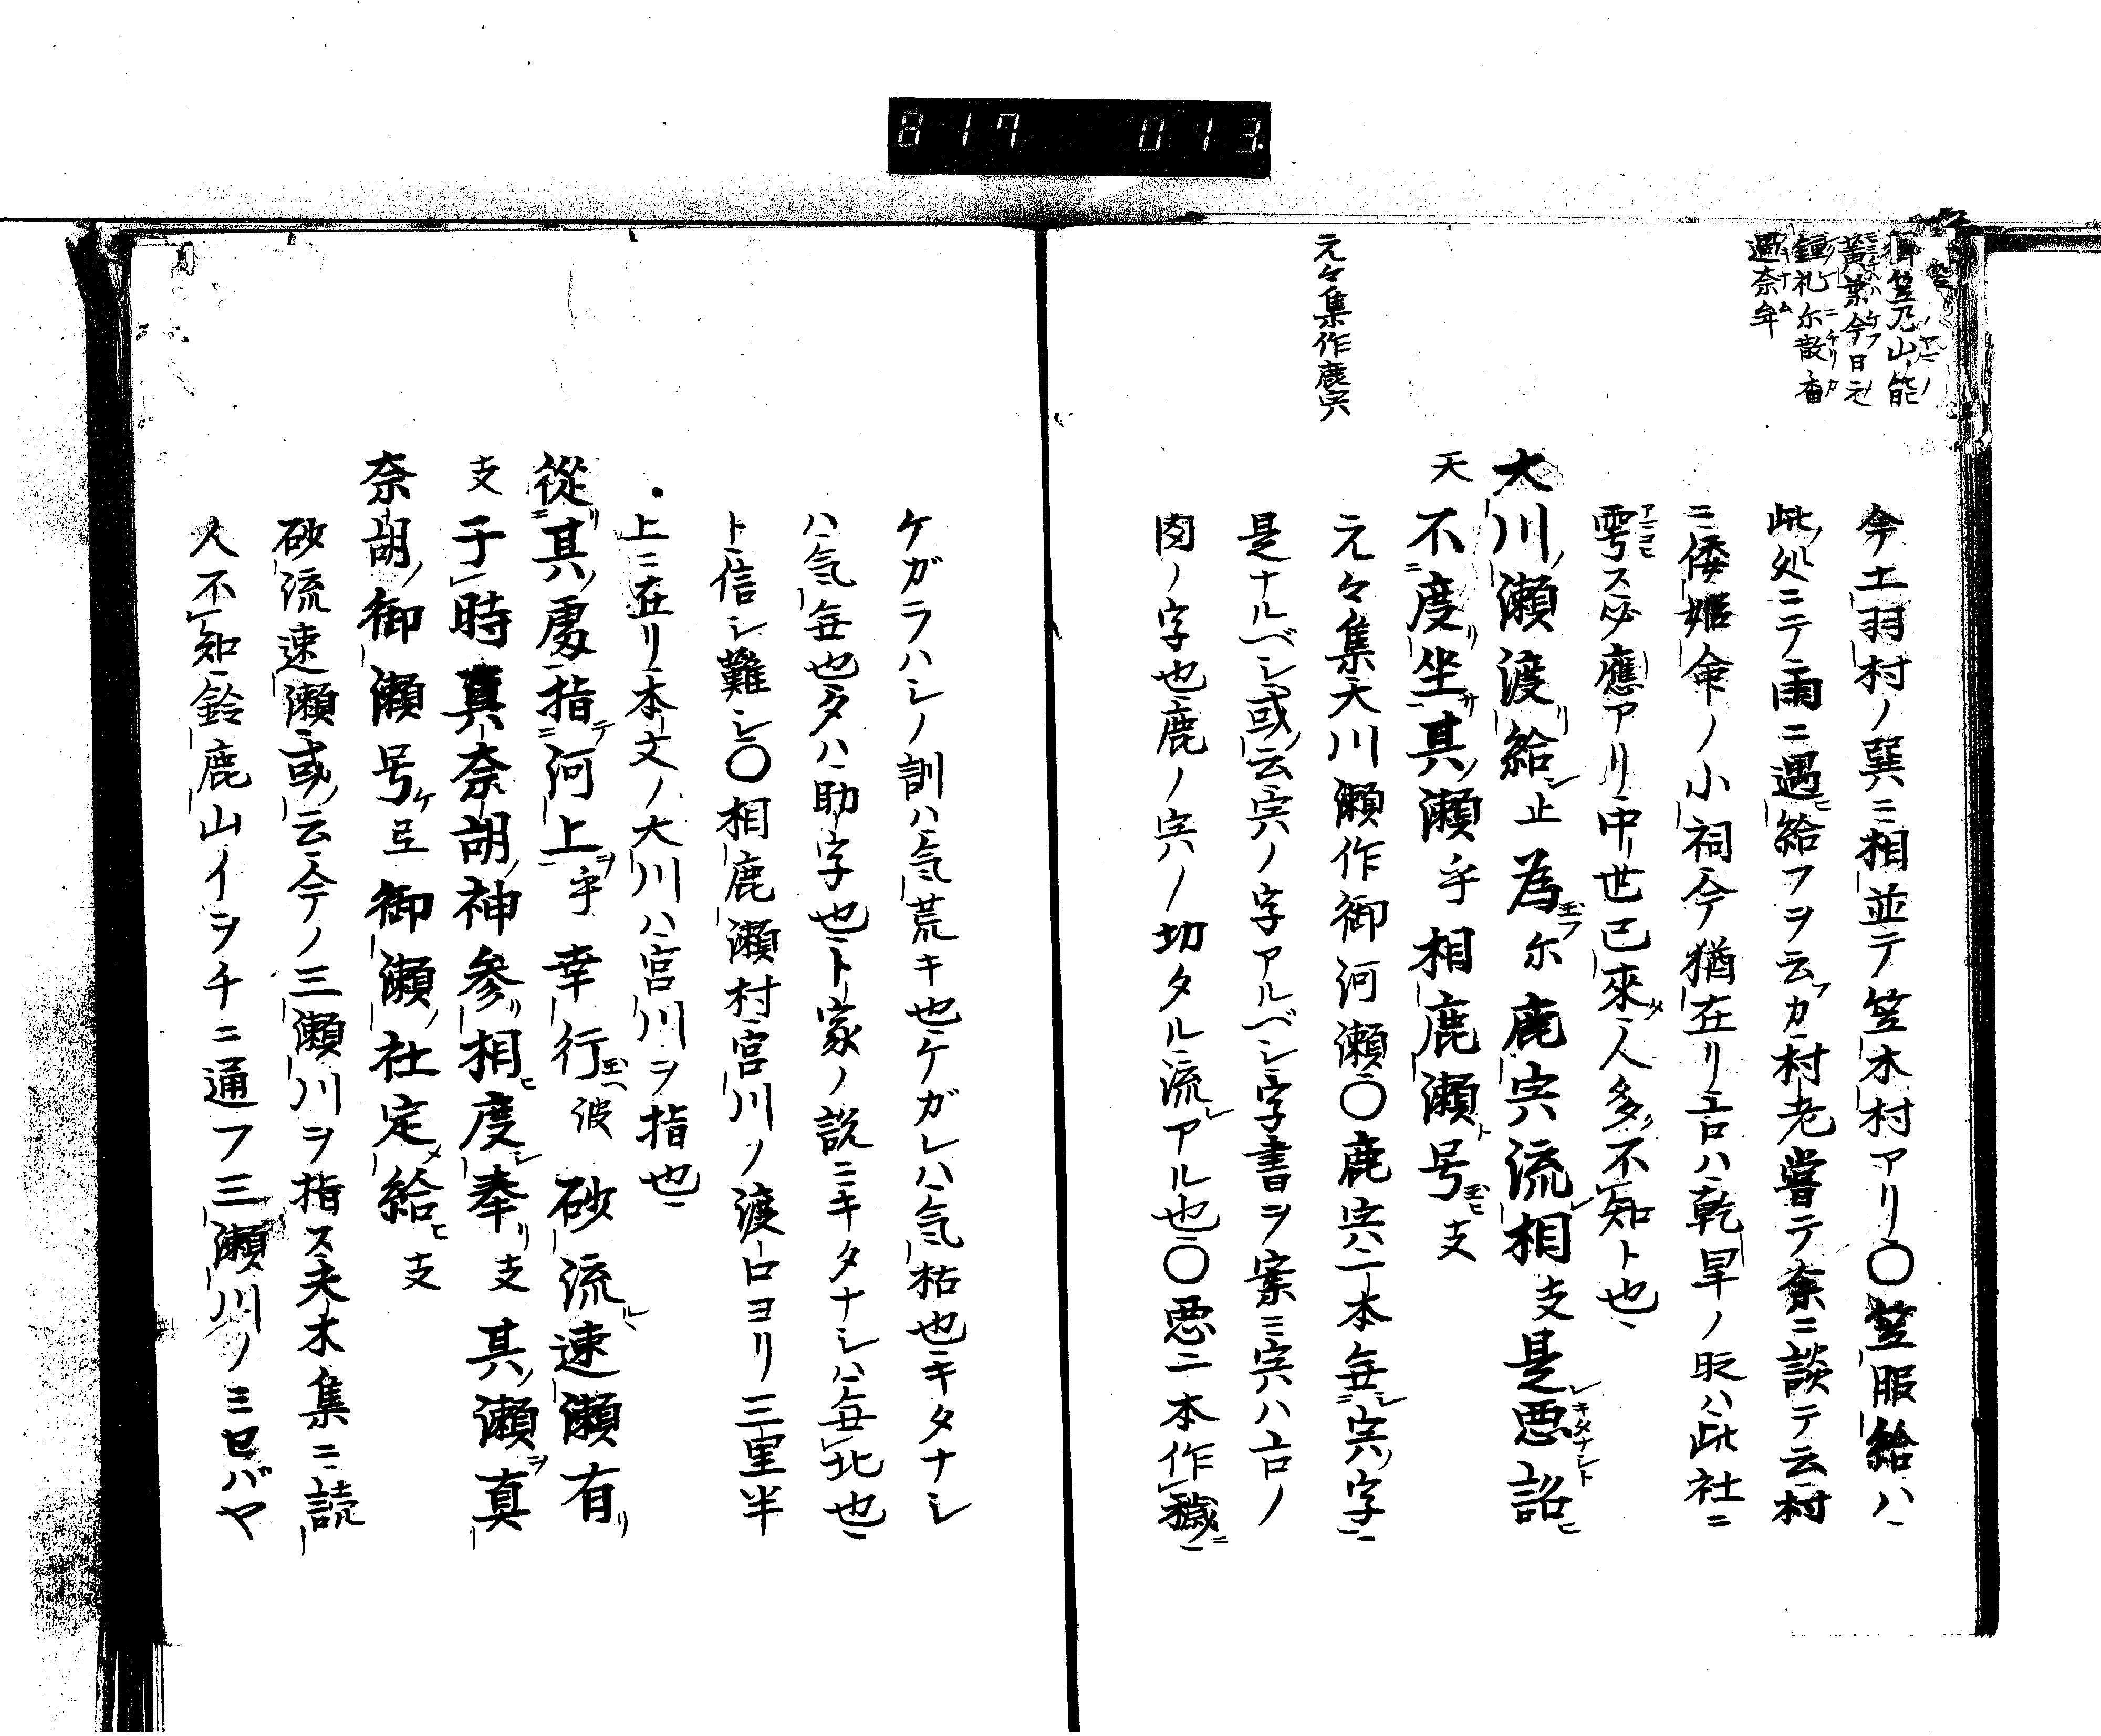 817 013.
御笠乃山能
黄葉今日
鍾礼尓散香
過奈牟
今土羽村ノ巽ニ相並テ笠木村アリ〇笠服給ハ
此処ニテ雨ニ遇給フヲ云カ村老嘗テ余ニ談テ云村
ニ倭姫命ノ小祠今猶在リ言ハ乾旱ノ時ハ此社ニ
雩ス必應アリ中世已來人多不知ト也
大川瀬渡給止為尓鹿宍流相支是悪詔
天不度坐其瀬乎相鹿瀬号支
元々集作鹿宍
元々集大川瀬作御河瀬〇鹿宍ハ一本無宍字
是ナルベシ或云宍ノ字アルベシ字書ヲ案ニ宍ハ古ノ
肉ノ字也鹿ノ宍ノ切タル流アル也〇悪二本作穢
ケガラハシノ訓ハ気荒キ也ケガレハ気枯也キタナシ
ハ気無也タハ助字也ト家ノ説ニキタナシハ無北也
ト信シ難シ〇相鹿瀬村宮川ノ渡口ヨリ三里半
上ニ在リ本文ノ大川ハ宮川ヲ指也
從其處指河上乎幸行波砂流速瀬有
支于時真奈胡神参相度奉支其瀬真
奈胡御瀬号弖御瀬社定給支
砂流速瀬或云今ノ三瀬川ヲ指ス夫木集ニ読
人不知鈴鹿山イヲチニ通フ三瀬川ノミセバヤ